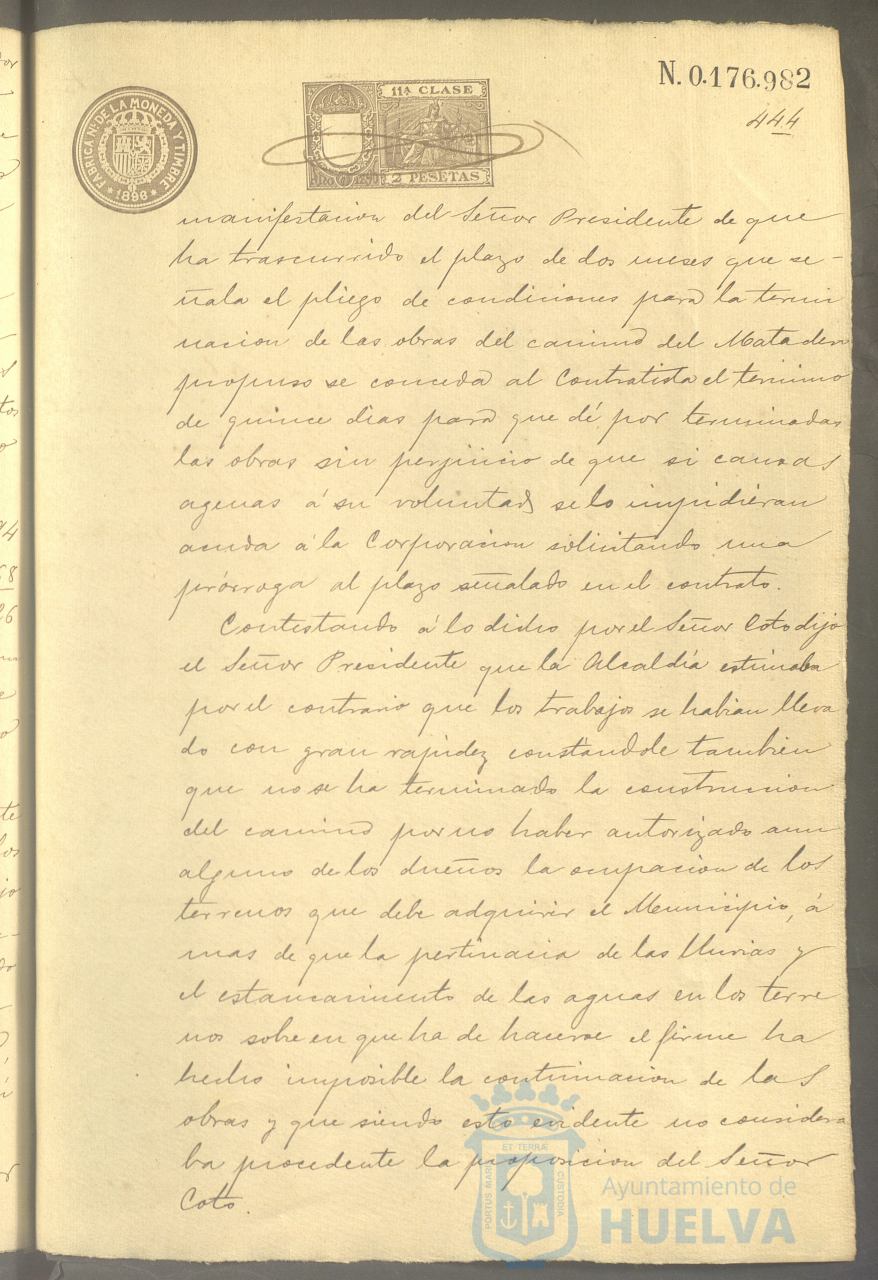 N. 0.176.982
444
FABRICA NAL DE LA MONEDA Y TIMBRE
* 1896 *
11ª CLASE
2 PESETAS
manifestacion del Señor Presidente de que
ha trascurrido el plazo de dos meses que se-
ñala el pliego de condiciones para la termi
nacion de las obras del camino del Matadero
propuso se conceda al Contratista el termino
de quince dias para que dé por terminadas
las obras sin perjuicio de que si causas
agenas á su voluntad se lo impidieran
acuda á la Corporacion solicitando una
prórroga al plazo señalado en el contrato.
Contestando á lo dicho por el Señor Coto dijo
el Señor Presidente que la Alcaldía estimaba
por el contrario que los trabajos se habian lleva
do con gran rapidez constandole tambien
que no se ha terminado la construccion
del camino por no haber autorizado aun
alguno de los dueños la ocupacion de los
terrenos que debe adquirir el Municipio, á
mas de que la pertinacia de las lluvias y
el estancamiento de las aguas en los terre
nos sobre en que ha de hacerse el firme ha
hecho imposible la continuacion de las
obras y que siendo esto evidente no considera
ba procedente la proposicion del Señor
Coto.
PORTUS MARIS ET TERRÆ CUSTODIA
Ayuntamiento de
HUELVA